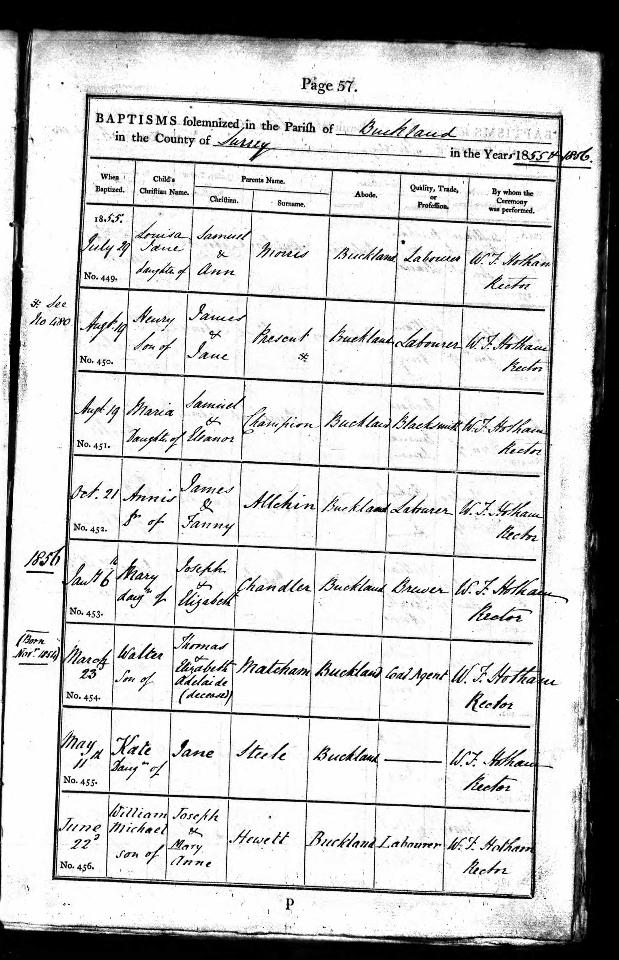 Page 57.
BAPTISMS solemnized in the Parish of Buckland
in the County of Surrey in the Years 1855 & 1856.
When Baptized. Child's Christian Name. Parents Name. Abode. Quality, Trade, or Profession. By whom the Ceremony was performed.
Christian. Surname.
1855.
July 29 Louisa Jane daughter of Samuel & Ann Morris Buckland Labourer W. F. Hotham Rector
No. 449.
* See No 480
Augt 19 Henry Son of James & Jane Present * Buckland Labourer W. F. Hotham Rector
No. 450.
Augt 19 Maria Daughter of Samuel & Eleanor Champion Buckland Blacksmith W. F. Hotham Rector
No. 451.
Oct. 21 Annis Dr of James & Fanny Allchin Buckland Labourer W. F. Hotham Rector
No. 452.
1856
Jan 6th Mary daugr of Joseph & Elizabeth Chandler Buckland Brewer W. F. Hotham Rector
No. 453.
(Born Novr 1854)
March 23 Walter Son of Thomas & Elizabeth Adelaide (decease) Matcham Buckland Coal Agent W. F. Hotham Rector
No. 454.
May 11th Kate Daugr of Jane Steele Buckland — W. F. Hotham Rector
No. 455.
June 22d William Michael son of Joseph & Mary Anne Hewett Buckland Labourer W. F. Hotham Rector
No. 456.
P